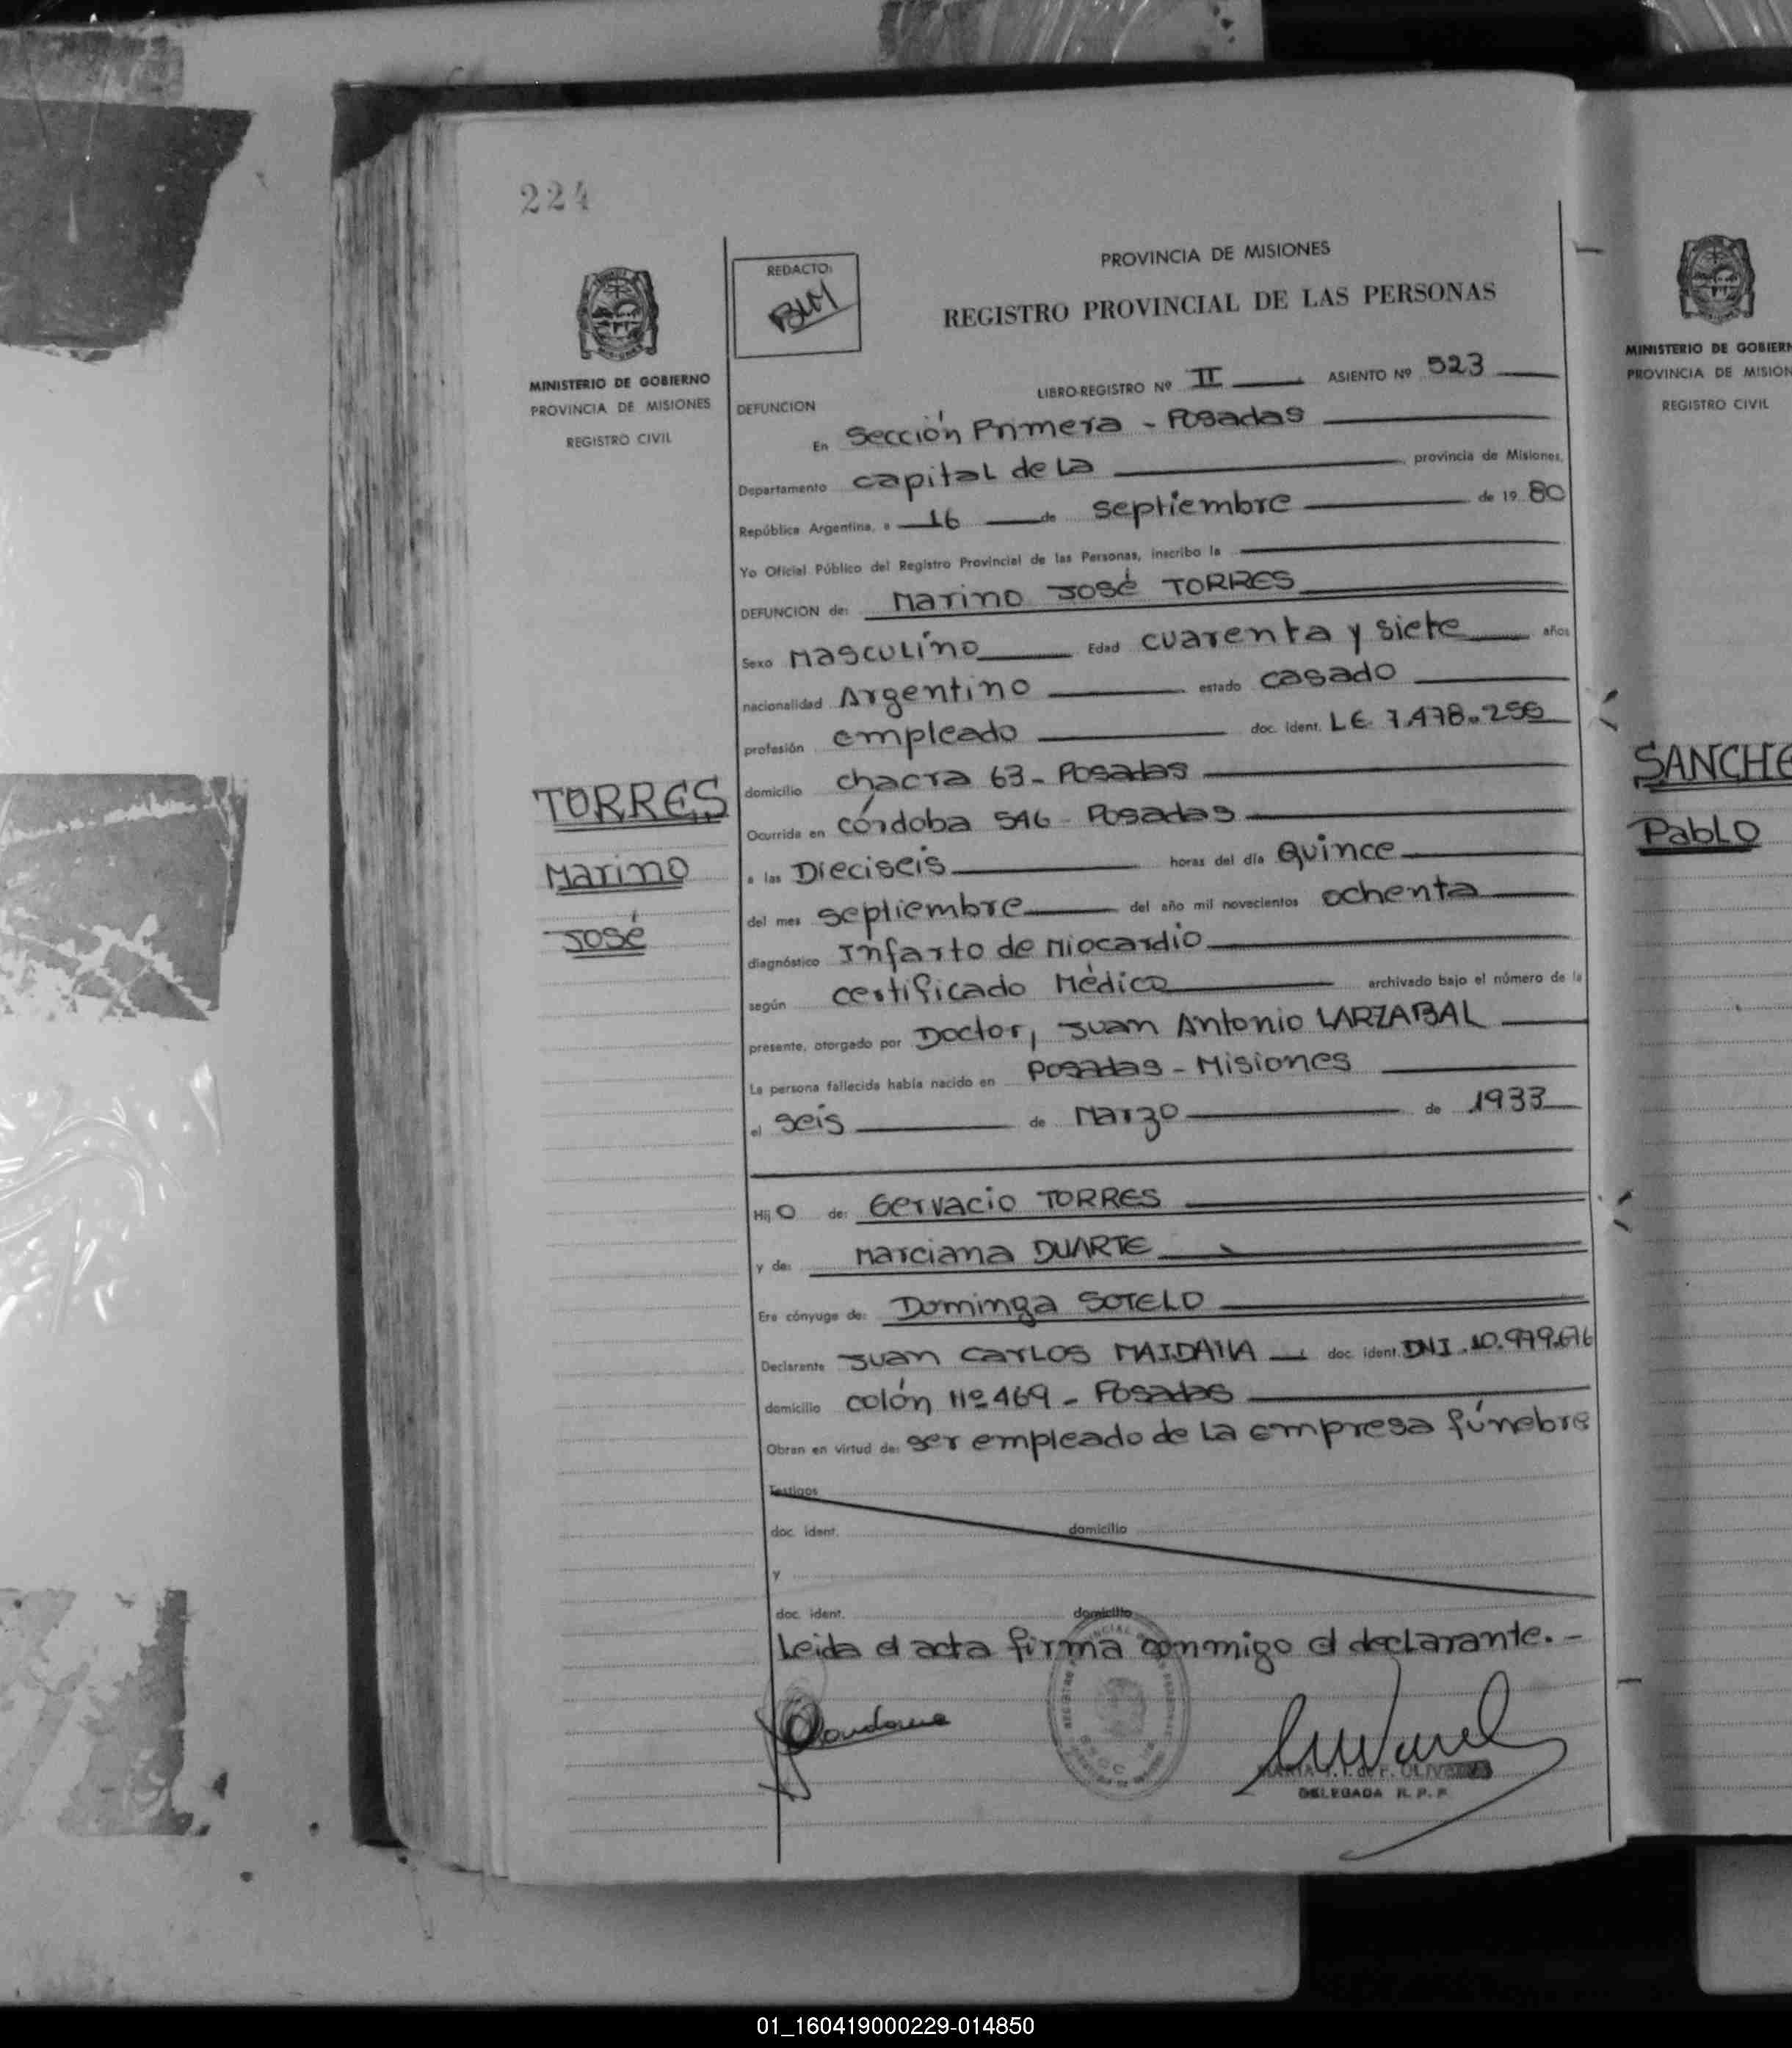 224
PROVINCIA DE MISIONES
REDACTO:
BLM
REGISTRO PROVINCIAL DE LAS PERSONAS
MINISTERIO DE GOBIERNO
PROVINCIA DE MISIONES
REGISTRO CIVIL
LIBRO-REGISTRO Nº II ASIENTO Nº 523
DEFUNCION
En Sección Primera - Posadas
Departamento capital de la provincia de Misiones,
República Argentina, a 16 de septiembre de 19 80
Yo Oficial Público del Registro Provincial de las Personas, inscribo la
DEFUNCION de: Marino José TORRES
Sexo Masculino Edad cuarenta y siete años
nacionalidad Argentino estado casado
profesión empleado doc. ident. L.E. 7.478.256
domicilio chacra 63 - Posadas
Ocurrida en córdoba 546 - Posadas
a las Dieciseis horas del día Quince
del mes septiembre del año mil novecientos ochenta
diagnóstico Infarto de Miocardio
según certificado Médico archivado bajo el número de la
presente, otorgado por Doctor, Juan Antonio LARZABAL
La persona fallecida había nacido en Posadas - Misiones
el seis de Marzo de 1933
Hij o de: Gervacio TORRES
y de: Marciana DUARTE
Era cónyuge de: Dominga SOTELO
Declarante Juan Carlos MAIDANA doc. ident. DNI. 10.979.676
domicilio colón Nº 469 - Posadas
Obran en virtud de: ser empleado de la empresa fúnebre
Testigos
doc. ident. domicilio
y
doc. ident. domicilio
Leida el acta firma conmigo el declarante. -
DELEGADA R. P. P.
TORRES
Marino
José
MINISTERIO DE GOBIERN
PROVINCIA DE MISION
REGISTRO CIVIL
SANCHE
Pablo
01_160419000229-014850